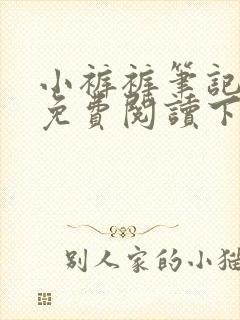 小裤裤筆記
免費閱讀下
别人家的小猫